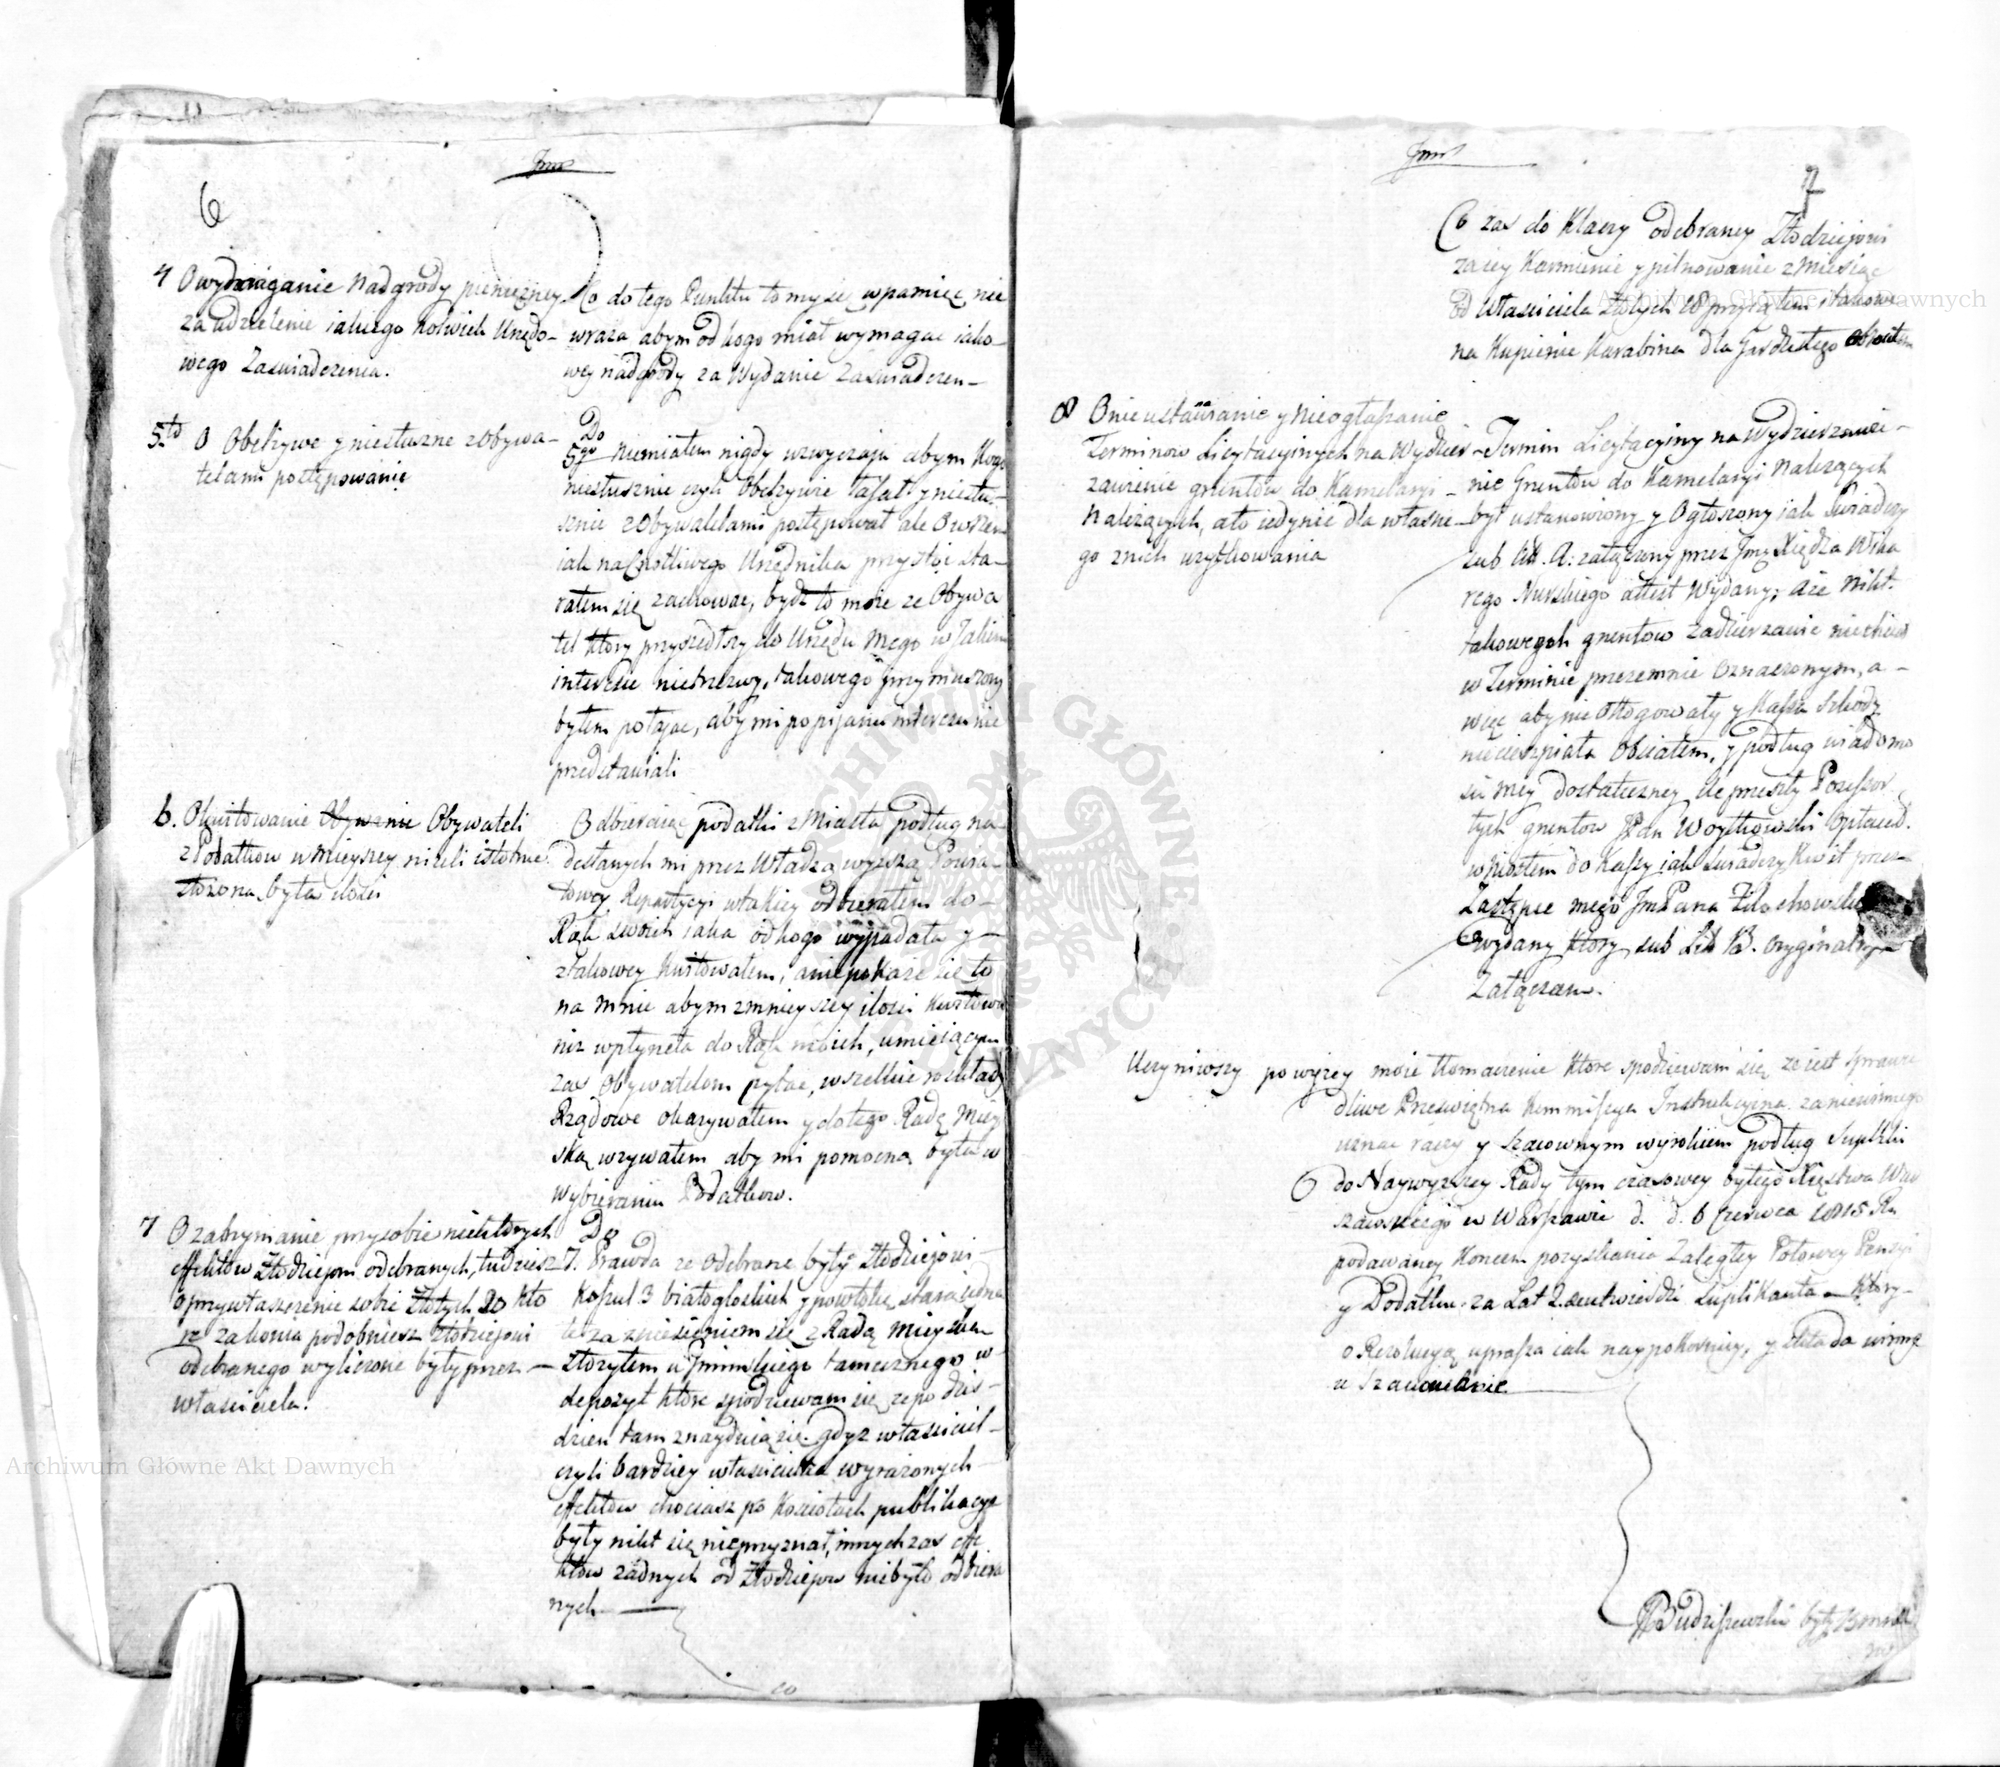 6
4 O wydzieraganie Nadgrody pienieżney
za udzielenie iakiego kolwiek Urzędo-
wego Zaswiadczenia.
Co do tego Punktu to my się w pamięć nie
wraza abym od kogo miał wymagac iako-
wey nadgrody za Wydanie Zaswiadczen-
5.to O Obelżywe y niesłuszne z Obywa-
telami postępowanie
Do
5go Niemiałem nigdy uzwyczaju abym Kogo
niesłusznie czyli Obelżywie łaiał y niesłu-
sznie z Obywatelami postępował ale Owszem
iak na Cnotliwego Urzędnika przystoi sta-
rałem się zachowac, bydź to może ze Obywa
tel który przyszedłszy do Urzędu Mego w Jakim
interesie nietrzezwy, takowego przymuszony
byłem połaiac, aby mi po pijanu interesu nie
przedstawiali
6. Okwitowanie Obywateli
z Podatkow w mieyszey, nizeli istotnie
złożona była ilości
Odbieraiąc podatki z Miasta podług na-
desłanych mi przez Władzą wyzszą Powia-
towey Repartycyi w takiey odbierałem do
Rąk swoich iaka od kogo wypadała y
z takowey kwitowałem, a nie pokaże się to
na mnie abym z mnieyszey ilości kwitował
niz wpłyneła do Rąk moich, umieiącym
zas Obywatelom czytac, wszelkie rozkłady
Rządowe okazywałem y do tego Radę Miey
ską wzywałem aby mi pomocną była w
wybieraniu Podatkow.
7 O zatrzymanie przy sobie niektorych
effektów Złodziejom odebranych, tudzież
o przywłaszczenie sobie Złotych 20 kto
re za konia podobniesz złodziejowi
odebranego wyliczone były przez
właściciela.
Do
7. Prawda ze odebrane były Złodziejowi
Koszul 3 białogłoskich y powłoka stara iedna
te za zniesieniem się z Radą Mieyską
złożyłem u Gminskiego tamecznego w
depozyt które spodziewam się ze po dzis-
dzien tam znayduią się. gdyz właściciel
czyli bardziey właścicielka wyrażonych
effektow chociasz po Kosciołach publikacye
były nikt się nieprzyznał, innych zas effe
któw żadnych od Złodziejow niebyło odbiera
nych
7
Co zas do Klaczy odebraney Złodziejowi
za iey Karmienie y pilnowanie z miesiąc
od Własciciela Złotych 18 przyiąłem takowe
na Kupienie Karabina dla
8 O nieustanawianie y nieogłaszanie
Terminow Licytacyinych na Wydzier-
zawienie gruntów do Kamelaryi
Należących, a to iedynie dla własne
go z nich uzytkowania
Termin Licytacyiny na Wydzierzawie-
nie Gruntów do Kamelaryi Należących
był ustanowiony y Ogłoszony iak Swiadczy
sub Litt. A: załączony przez Jmę Xiędza Wika
rego Nurskiego attest Wydany, a że Nikt
takowych gruntow zadzierzawic niechciał
w Terminie przezemnie Oznaczonym, a-
więc aby nie Odłogowały y Kassa Szkody
niecierpiała Obsiałem, y podług wiadomo
sci mey dostateczney ile przeszły Possessor
tych gruntow Pan Woytkowski Opłacał
wniosłem do Kassy iak Swiadczy Kwit przez
Zastępce mego JmPana Żdochowskie
wydany który sub Litt B. oryginalny
Załączam.
Uczyniwszy powyżey moie tłomaczenie które spodziewam się ze iest sprawie
dliwe Prześwietna Kommissya Instrukcyina za niewinnego
uznac raczy y szanownym wyrokiem podług Suppliki
do Naywyższey Rady tymczasowey byłego Xięstwa War
szawskiego w Warszawie d. d. 6 Czerwca 1815 Ru
podawaney koncem pozyskania Zaległey Połowey Pensyi
y Podatku za Lat 2 zatwierdzi Supplikanta Który
o Rezolucyą uprasza iak naypokorniey, y składa winne
u szanowanie
Budziszewski były Burmistrz